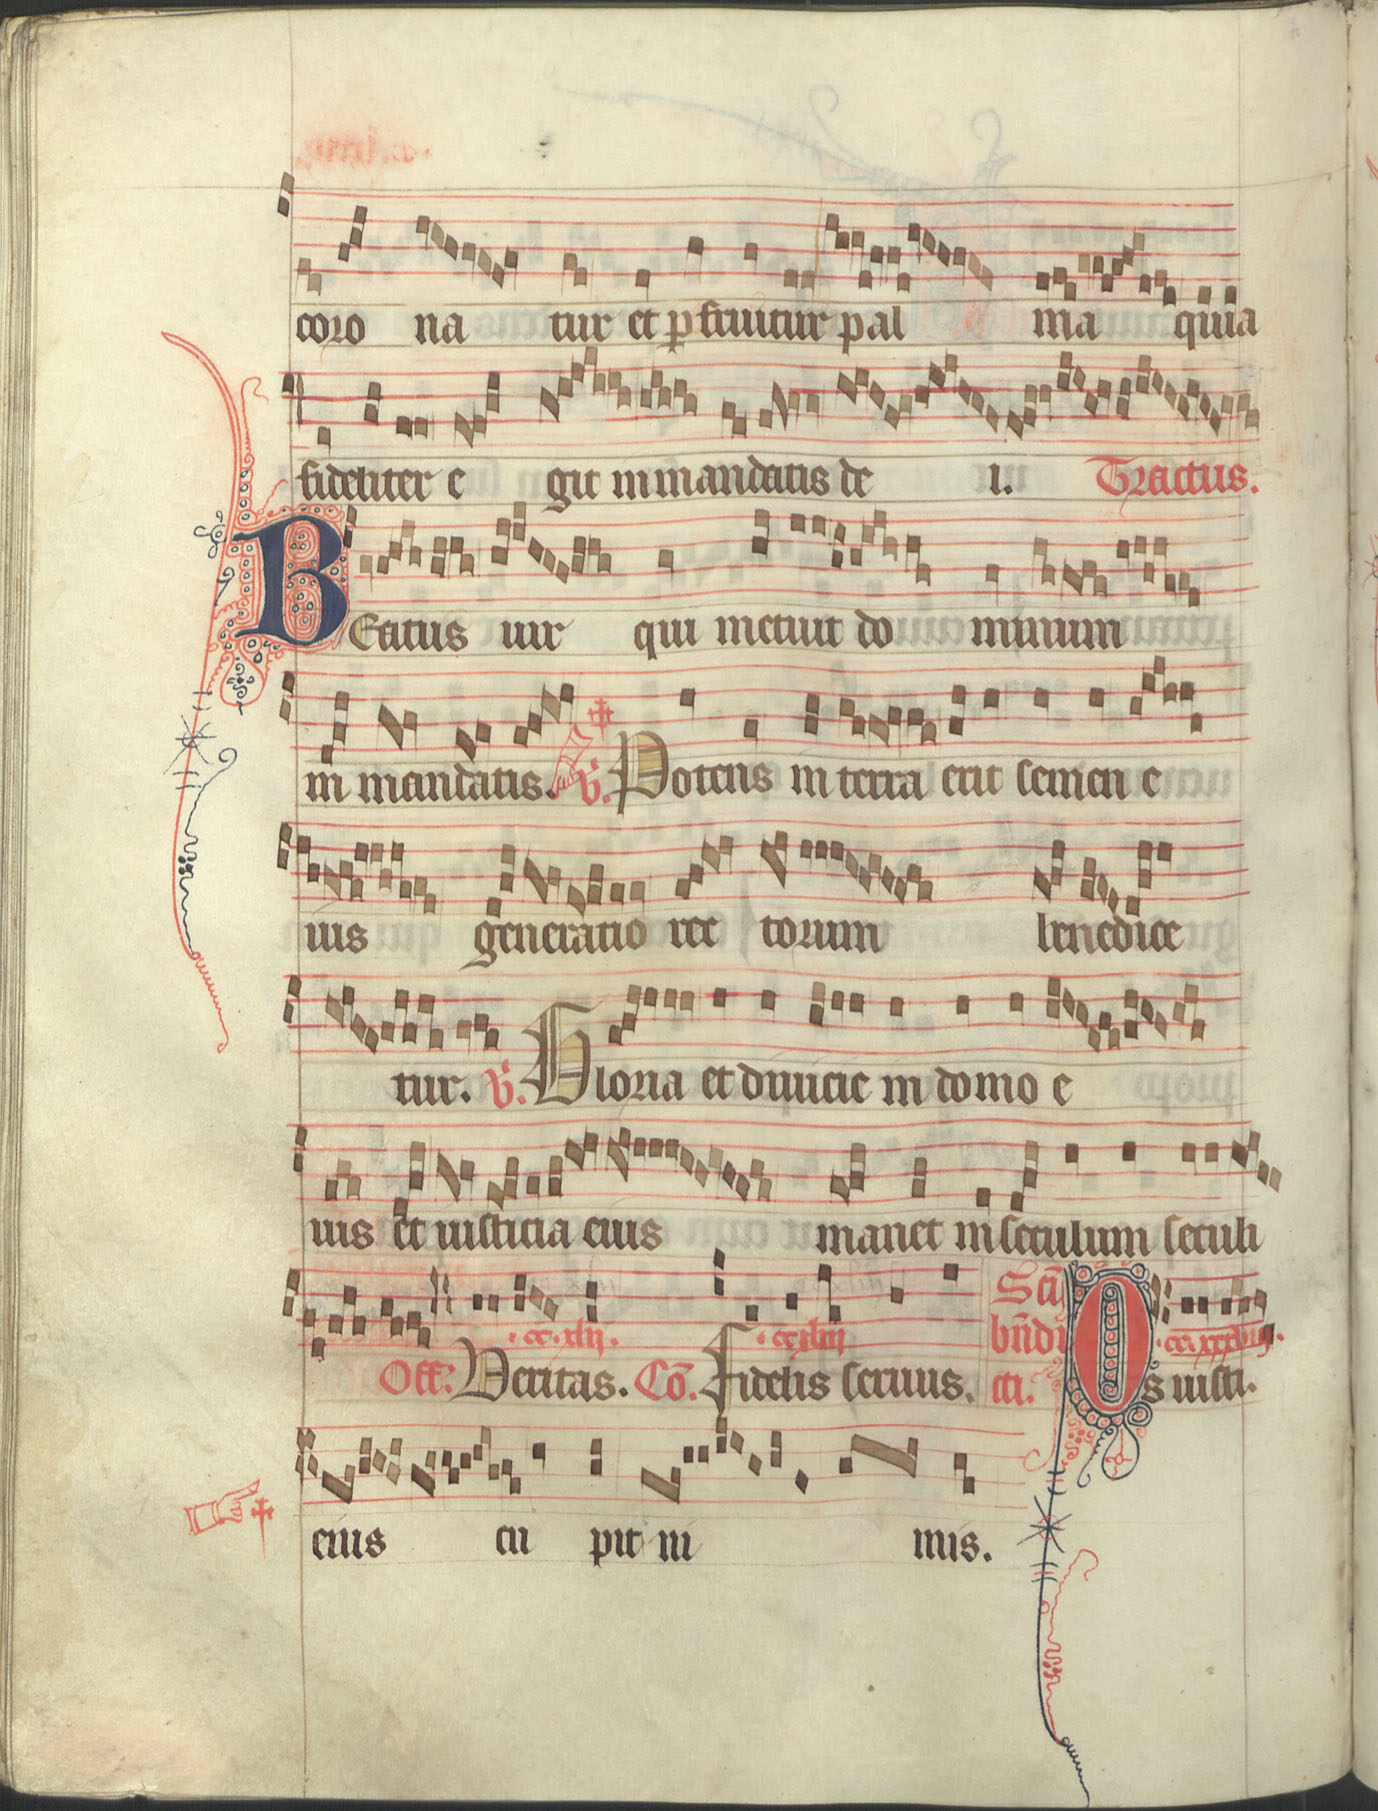 coro na tur et pfruitur pal ma quia
fideliter e git in mandatis de i. Tractus.
BEatus uir qui metuit do minum
in mandatis. V. Potens in terra erit semen e
ius generatio rec torum benedice
tur. V. Gloria et diuicie in domo e
ius et iusticia eius manet in seculum seculi
.cc.xlij. .ccxliiij Scti bndi .ccxxxviij.
Off. Veritas. Co. Fidelis seruus. cti. Os iusti.
eius cu pit ni mis.